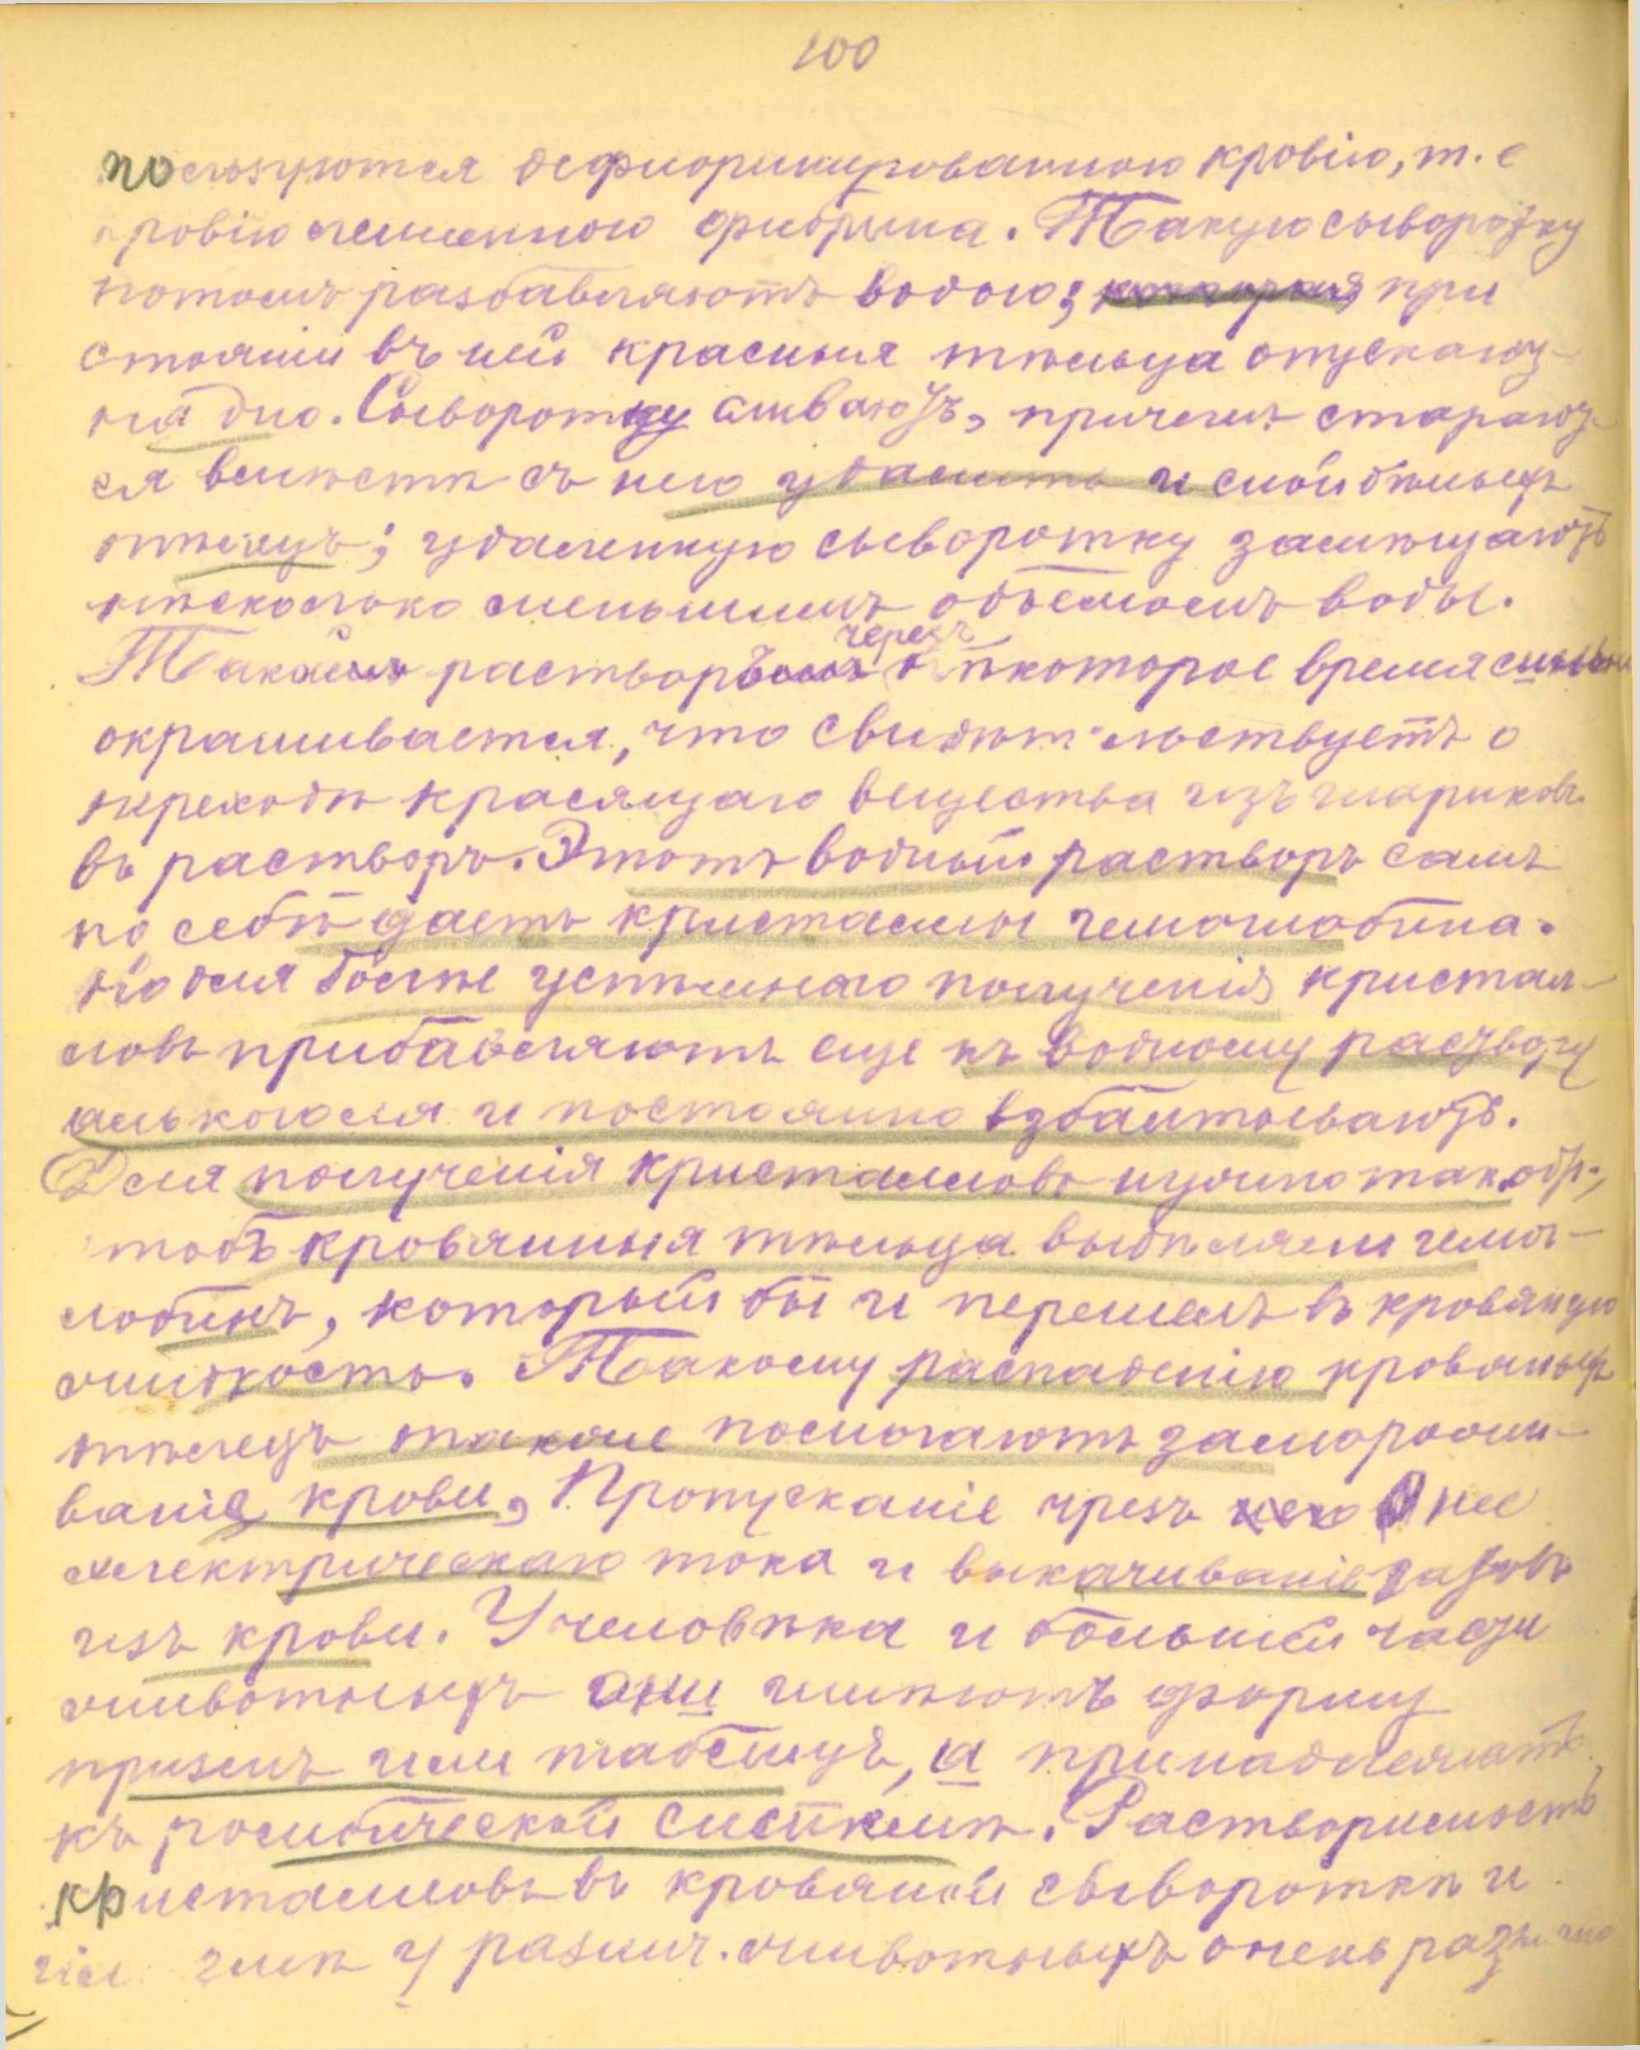 100
пользуются дефибринированною кровію, т. е
кровію лишенною фибрина. Такую сыворотку
потомъ разбавляютъ водою; при
стояніи въ ней красныя тѣльца опускают-
на дно. Сыворотку сливаютъ, причемъ старают-
ся вмѣстѣ съ нею удалить и слой бѣлыхъ
тѣлецъ; удаленную сыворотку замѣщаютъ
нѣсколько меньшимъ объемомъ воды.
Такой растворъ черезъ нѣкоторое время сильно
окрашивается, что свидѣтельствуетъ о
переходѣ красящаго вещества изъ шариковъ
въ растворъ. Этотъ водный растворъ самъ
по себѣ даетъ кристаллы гемоглобина.
Но для болѣе успѣшнаго полученія кристал-
ловъ прибавляютъ еще къ водному раствору
алькоголя и постоянно взбалтываютъ.
Для полученія кристалловъ нужно так. обр.,
чтобъ кровяныя тѣльца выдѣляли гемог-
лобинъ, который бы и перешелъ въ кровяную
жидкость. Такому распаденію кровяныхъ
тѣлецъ также помогаютъ заморажи-
ваніе крови, Пропусканіе чрезъ нее
электрическаго тока и выкачиваніе газовъ
изъ крови. У человѣка и большей части
животныхъ они имѣютъ форму
призмъ или таблицъ, и принадлежатъ
къ ромбической системѣ. Растворимость
кристалловъ въ кровяной сывороткѣ и
у различ. животныхъ очень различно